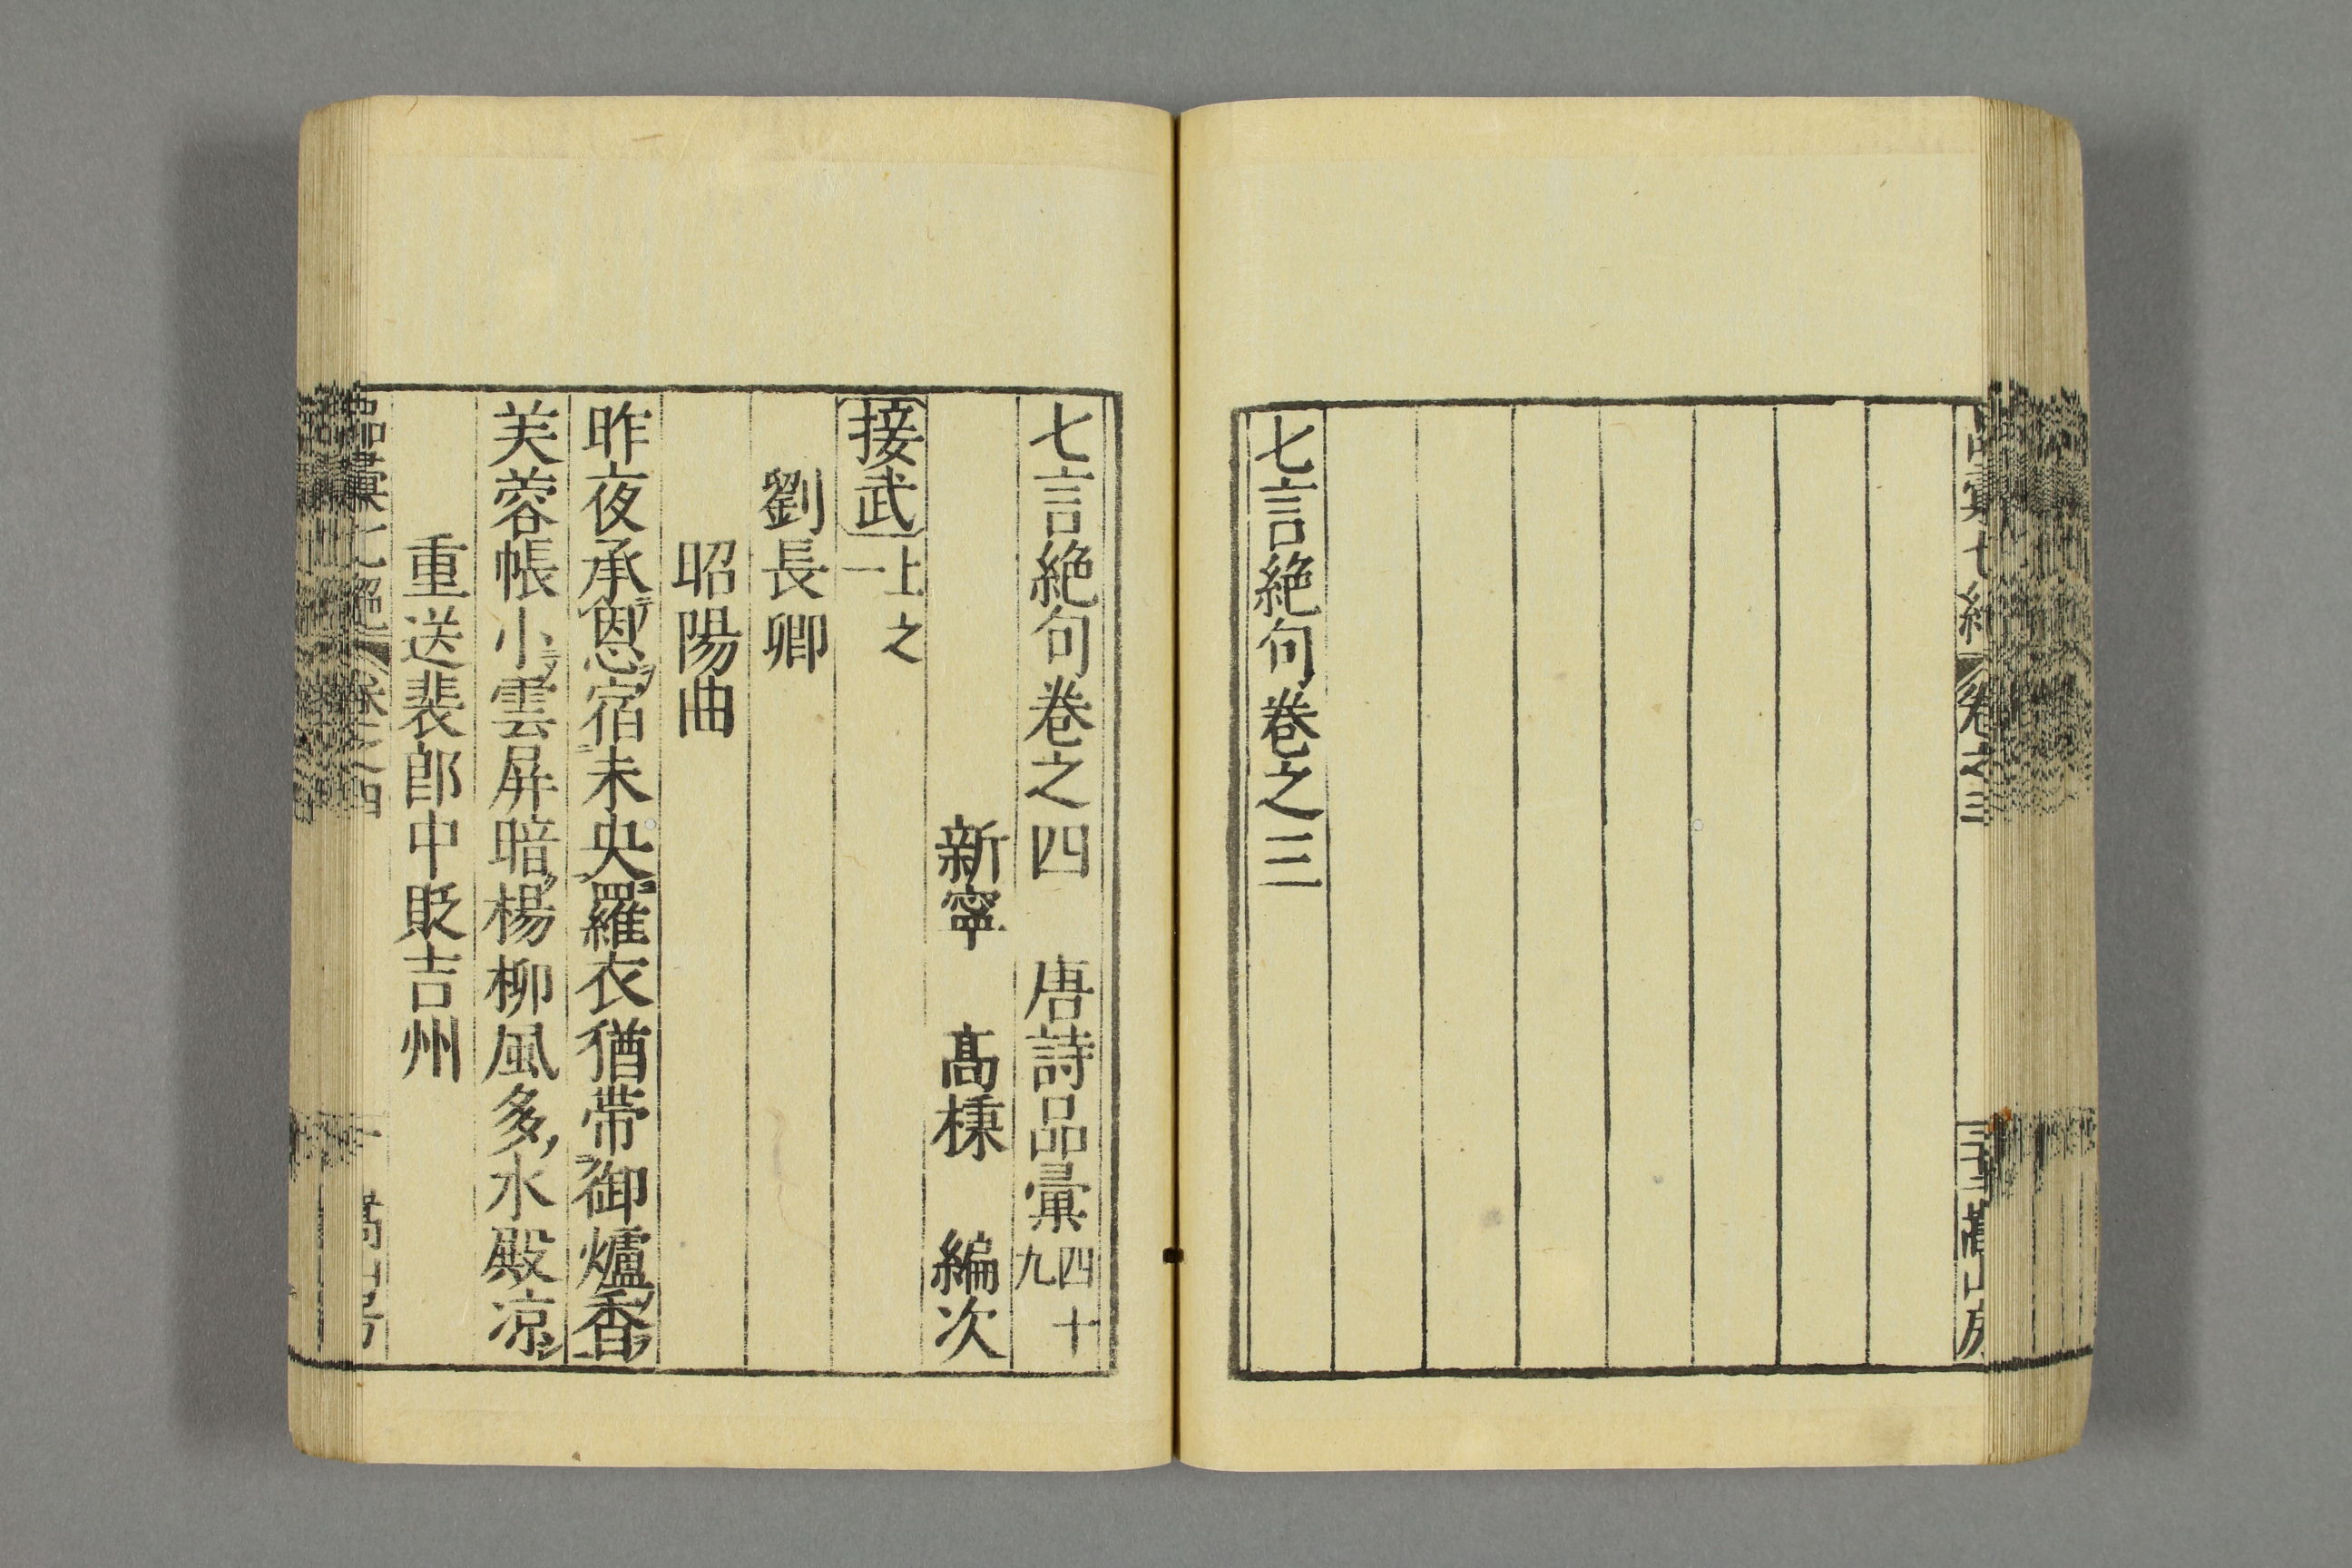 七言絶句卷之三
七言絶句卷之四　唐詩品彙四十九
新寧　髙棅　編次
接武上之一
劉長卿
昭陽曲
昨夜承恩宿未央羅衣猶帶御爐香
芙蓉帳小雲屏暗楊柳風多水殿凉
重送裴郎中貶吉州